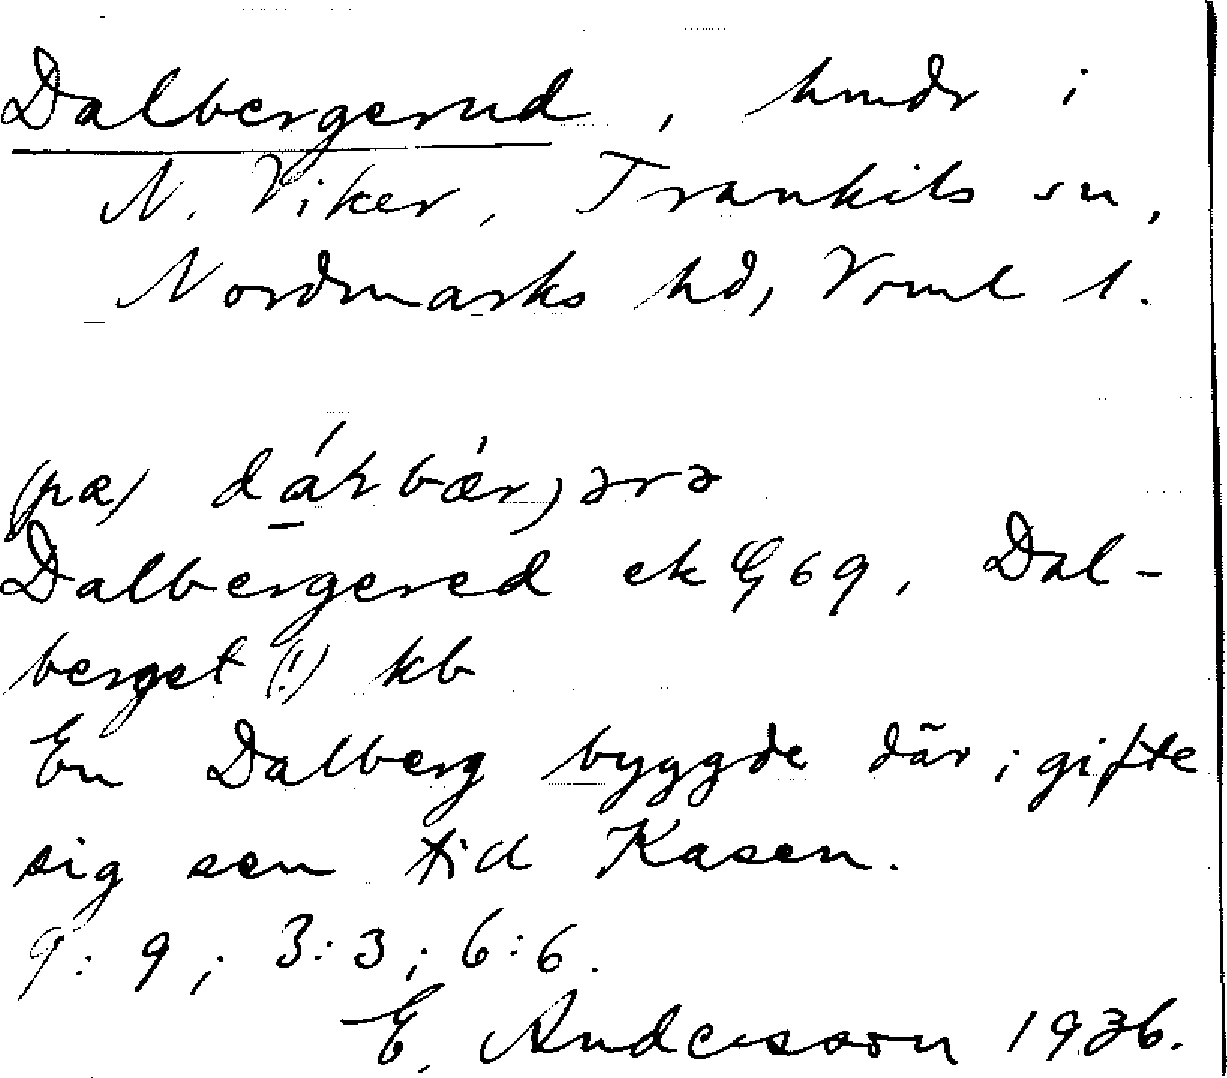 Dalbergerud, hmdr i
N. Viker, Trankils sn,
Nordmarks hd, Vrml l.
(pæ)
Dalbergered ek G 69, Dal-
berget (!) kb
En Dalberg byggde där; gifte
sig sen till Kasen.
9:9; 3:3; 6:6.
E. Andersson 1936.